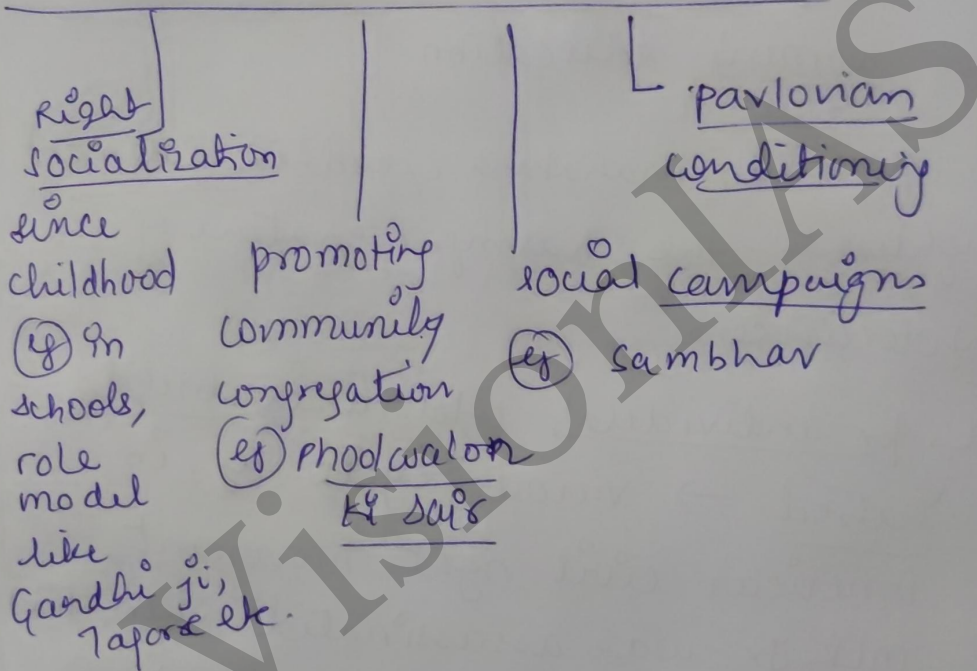 Right
socialization
since
childhood
eg in
schools,
role
model
like
Gandhi ji,
Tagore etc.
promoting
community
congregation
eg Phoolwalon
Ki Sair
social campaigns
eg Sambhav
pavlovian
conditioning
VisionIAS